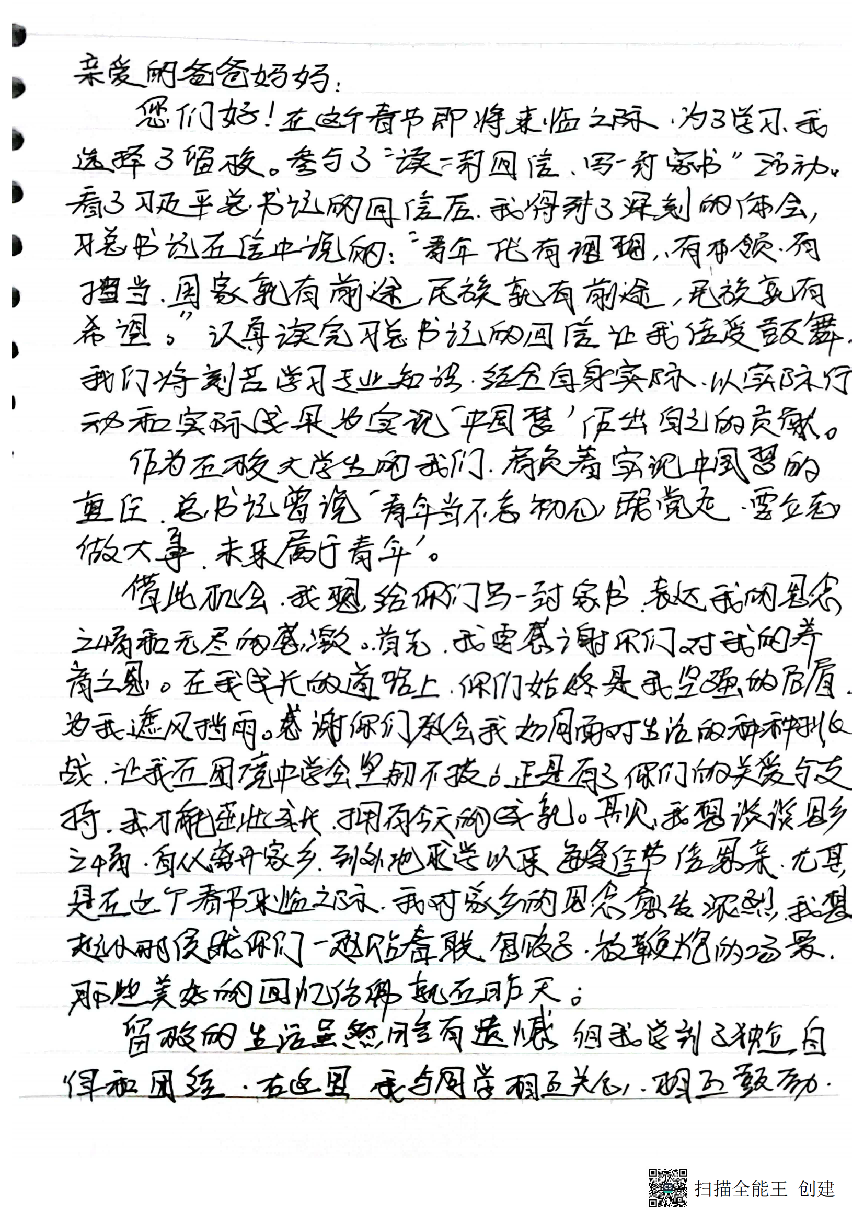 亲爱的爸爸妈妈：
您们好！在这个春节即将来临之际，为了学习、我
选择了留校。参与了“读一封回信、写一封家书”活动。
看了习近平总书记的回信后，我得到了深刻的体会，
习总书记在信中说的：“青年一代有理想，有本领，有
担当，国家就有前途，民族就有前途，民族就有
希望。”认真读完习总书记的回信让我倍受鼓舞，
我们将刻苦学习专业知识，结合自身实际、以实际行
动和实际成果为实现‘中国梦’作出自己的贡献。
作为在校大学生的我们，肩负着实现中国梦的
重任，总书记曾说‘青年当不忘初心，跟党走，要立志
做大事，未来属于青年’。
借此机会，我想给你们写一封家书，表达我的思念
之情和无尽的感激。首先，我要感谢你们对我的养
育之恩。在我成长的道路上，你们始终是我坚强的后盾，
为我遮风挡雨。感谢你们教会我如何面对生活的种种挑
战，让我在困境中学会坚韧不拔。正是有了你们的关爱与支
持，我才能茁壮成长，拥有今天的成就。再次，我想谈谈思乡
之情，自从离开家乡，到外地求学以来，每逢佳节倍思亲，尤其
是在这个春节来临之际，我对家乡的思念愈发浓烈，我想
起小时候跟你们一起贴春联、包饺子、放鞭炮的场景，
那些美好的回忆仿佛就在昨天。
留校的生活虽然略有遗憾，但我学到了独立、自
律和团结，在这里，我与同学相互关心，相互鼓励，
扫描全能王 创建